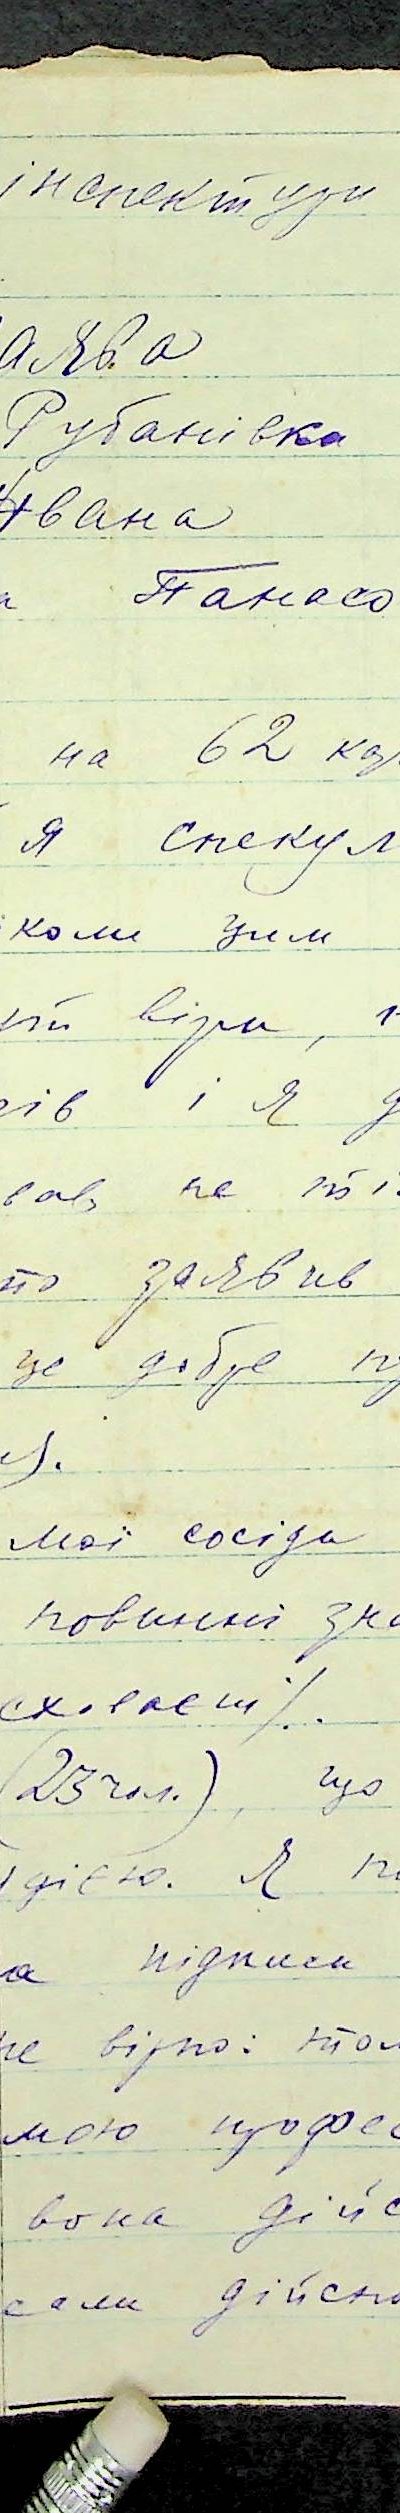 інспектури
аява
Рубанівка
Ивана
а Панасо
на 62 кар
я спекул
коли цим
ий віри, н
ів і я д
вав не ті
то заявив
це добре пу
).
мої сосіди
повинні зна
сховаєш/.
(23 чол.), що
дією. Я по
а підписи
не вірно: том
мою професс
вона дійс
сами дійсно